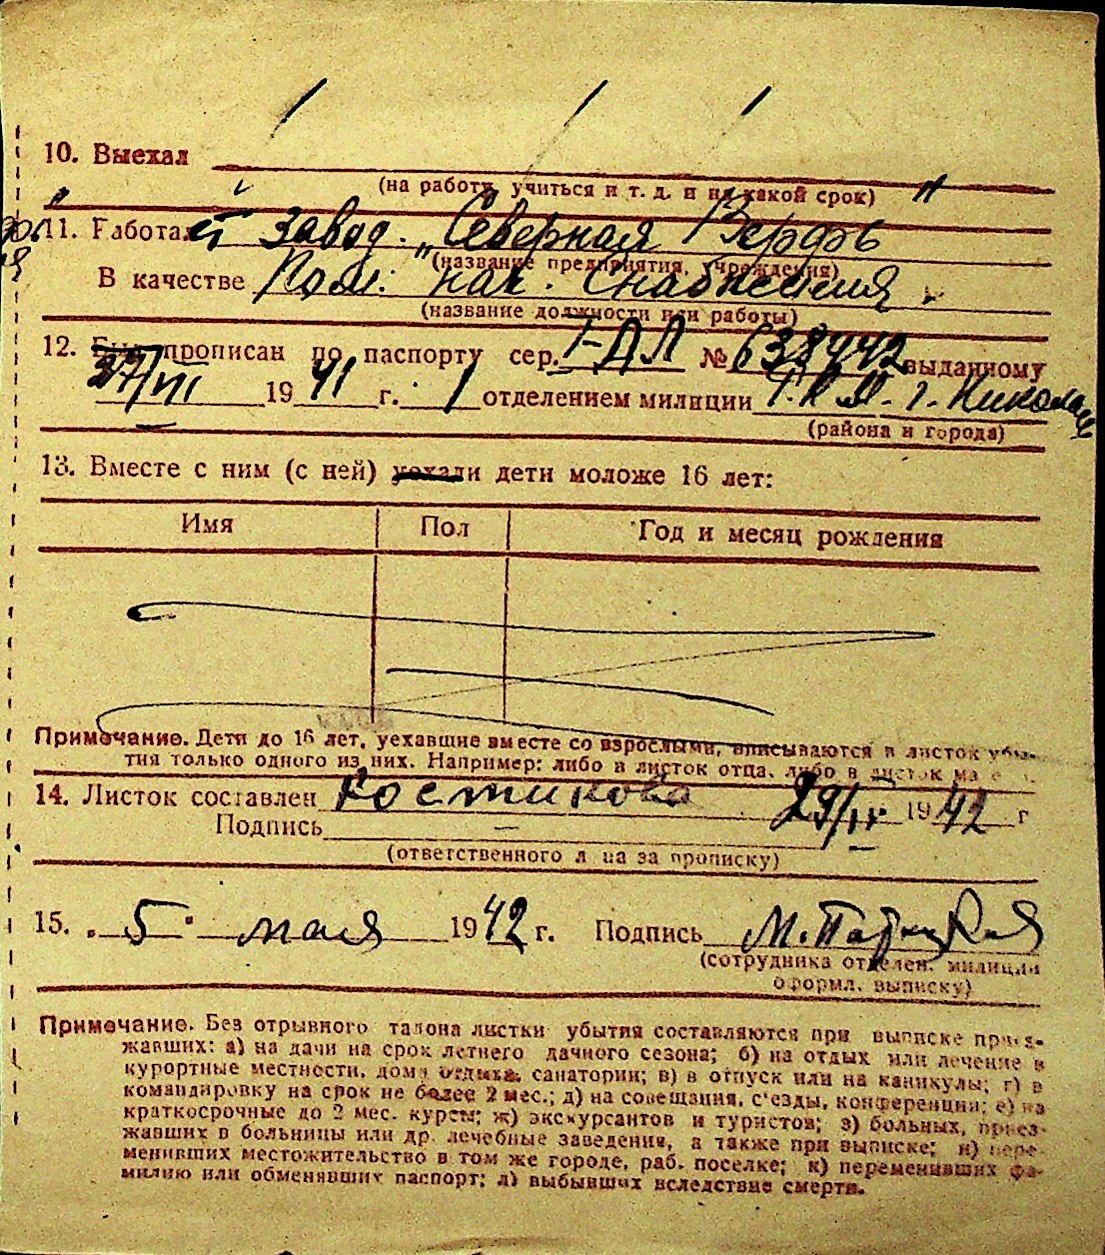 10. Выехал
(на работу, учиться и т. д. и на какой срок)
11. Работает завод. „Северная Верфь"
(название предприятия, учреждения)
В качестве Пом. нач. Снабжения
(название должности или работы)
12. Был прописан по паспорту сер. I-ДЛ № 638442 выданному
27/VII 1941 г. 1 отделением милиции г. Николаев
(района и города)
13. Вместе с ним (с ней) уехали дети моложе 16 лет:
Имя Пол Год и месяц рождения
Примечание. Дети до 16 лет, уехавшие вместе со взрослыми, вписываются в листок убы-
тия только одного из них. Например: либо в листок отца, либо в листок ма
14. Листок составлен Костикова 29/IV 1942 г
Подпись
(ответственного лица за прописку)
15. „5" мая 1942 г. Подпись М.
(сотрудника отделен. милиции
оформл. выписку)
Примечание. Без отрывного талона листки убытия составляются при выписке приез-
жавших: а) на дачи на срок летнего дачного сезона; б) на отдых или лечение в
курортные местности, дома отдыха, санатории; в) в отпуск или на каникулы; г) в
командировку на срок не более 2 мес.; д) на совещания, с'езды, конференции; е) на
краткосрочные до 2 мес. курсы; ж) экскурсантов и туристов; з) больных, приез-
жавших в больницы или др. лечебные заведения, а также при выписке; и) пере-
менивших местожительство в том же городе, раб. поселке; к) переменивших фа-
милию или обменявших паспорт; л) выбывших вследствие смерти.